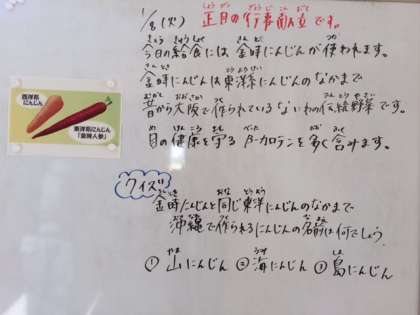 1/8(火) 正月の行事献立です。
今日の給食には金時にんじんが使われます。
金時にんじんは東洋系にんじんのなかまで
昔から大阪で作られている「なにわの伝統野菜」です。
目の健康を守るβ-カロテンを多く含みます。
西洋系
にんじん
東洋系にんじん
「金時人参」
クイズ
金時にんじんと同じ東洋にんじんのなかまで
沖縄で作られるにんじんの名前は何でしょう
① 山にんじん ② 海にんじん ③ 島にんじん